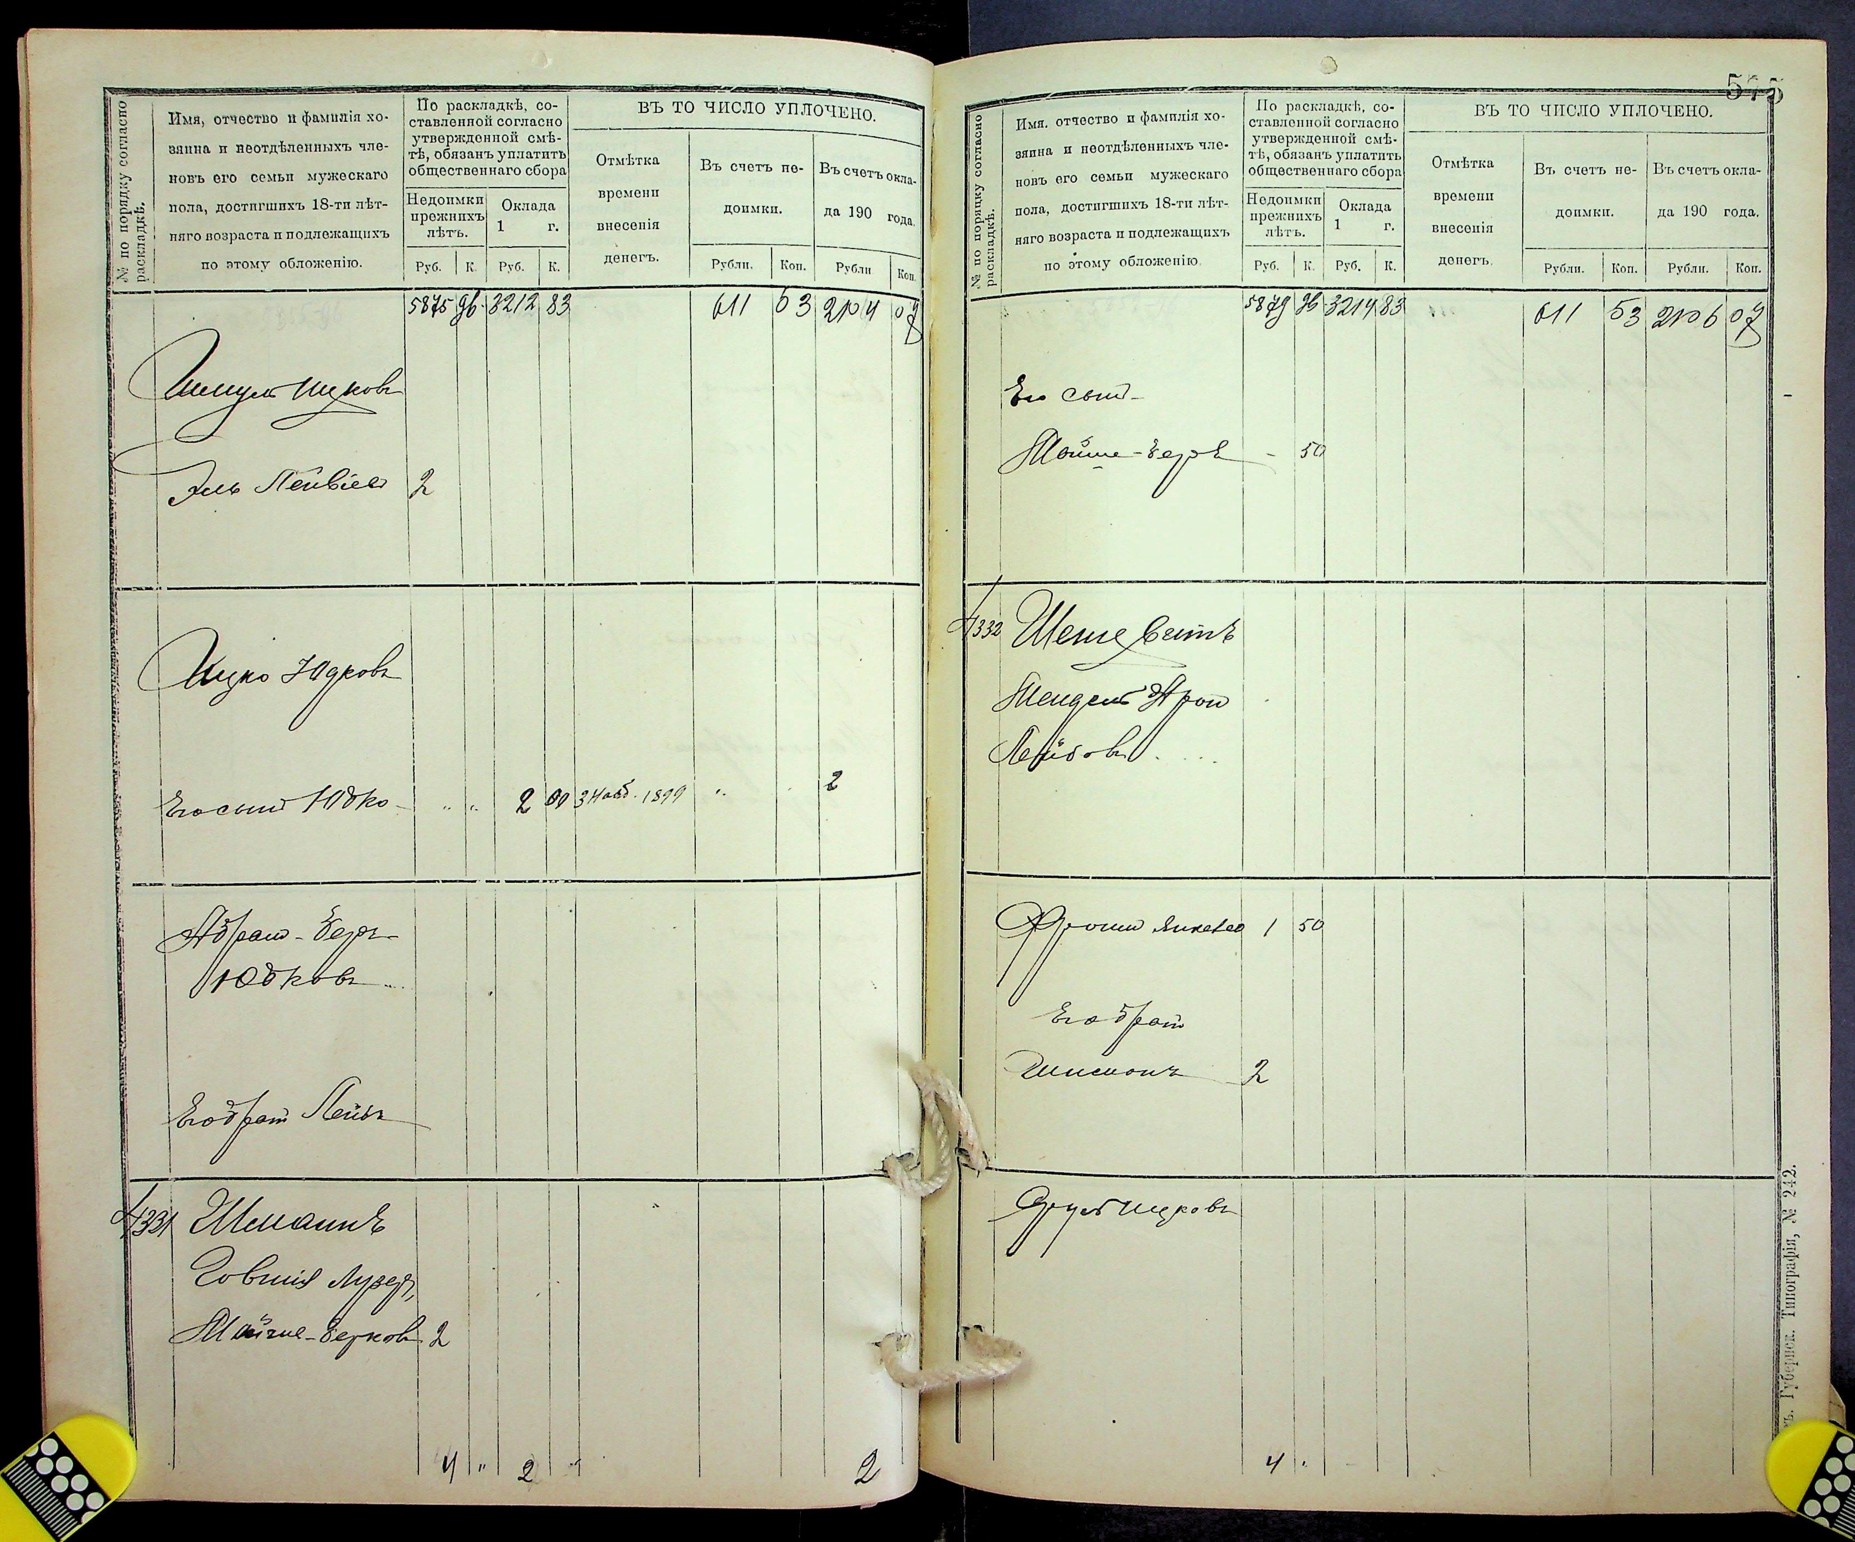 № по порядку согласно раскладкѣ.
Имя, отчество и фамилія хо-
зяина и неотдѣленныхъ чле-
новъ его семьи мужескаго
пола, достигшихъ 18-ти лѣт-
няго возраста и подлежащихъ
по этому обложенію.
По раскладкѣ, со-
ставленной согласно
утвержденной смѣ-
тѣ, обязанъ уплатить
общественнаго сбора
Недоимки прежнихъ лѣтъ.
Оклада 1 г.
Руб. К. Руб. К.
ВЪ ТО ЧИСЛО УПЛОЧЕНО.
Отмѣтка
времени
внесенія
денегъ.
Въ счетъ не-
доимки.
Въ счетъ окла-
да 190 года.
Рубли. Коп. Рубли Коп.
5875 96 3212 83 611 53 2104 07
Шмуль Ицковъ
Эль Лейвіевъ 2
Ицко Юдковъ
Его сынъ Юдко 2 00 3 Нояб. 1899 2
Абрамъ-Беръ
Юдковъ
Его братъ Лейба
4331 Шманнъ
Говшія Лузеръ,
Мойше-Берковъ 2
4 " 2 " 2
575
№ по порядку согласно раскладкѣ.
Имя, отчество и фамилія хо-
зяина и неотдѣленныхъ чле-
новъ его семьи мужескаго
пола, достигшихъ 18-ти лѣт-
няго возраста и подлежащихъ
по этому обложенію.
По раскладкѣ, со-
ставленной согласно
утвержденной смѣ-
тѣ, обязанъ уплатить
общественнаго сбора
Недоимки прежнихъ лѣтъ.
Оклада 1 г.
Руб. К. Руб. К.
ВЪ ТО ЧИСЛО УПЛОЧЕНО.
Отмѣтка
времени
внесенія
денегъ.
Въ счетъ не-
доимки.
Въ счетъ окла-
да 190 года.
Рубли. Коп. Рубли. Коп.
5879 96 3214 83 611 53 2106 07
Его сынъ
Мойше-Беръ - 50
4332
Мендель Аронъ
Лейбовъ
1 50
Его братъ
Шимонъ 2
Сруль Ицковъ
4 "
Губернск. Типографія, № 242.